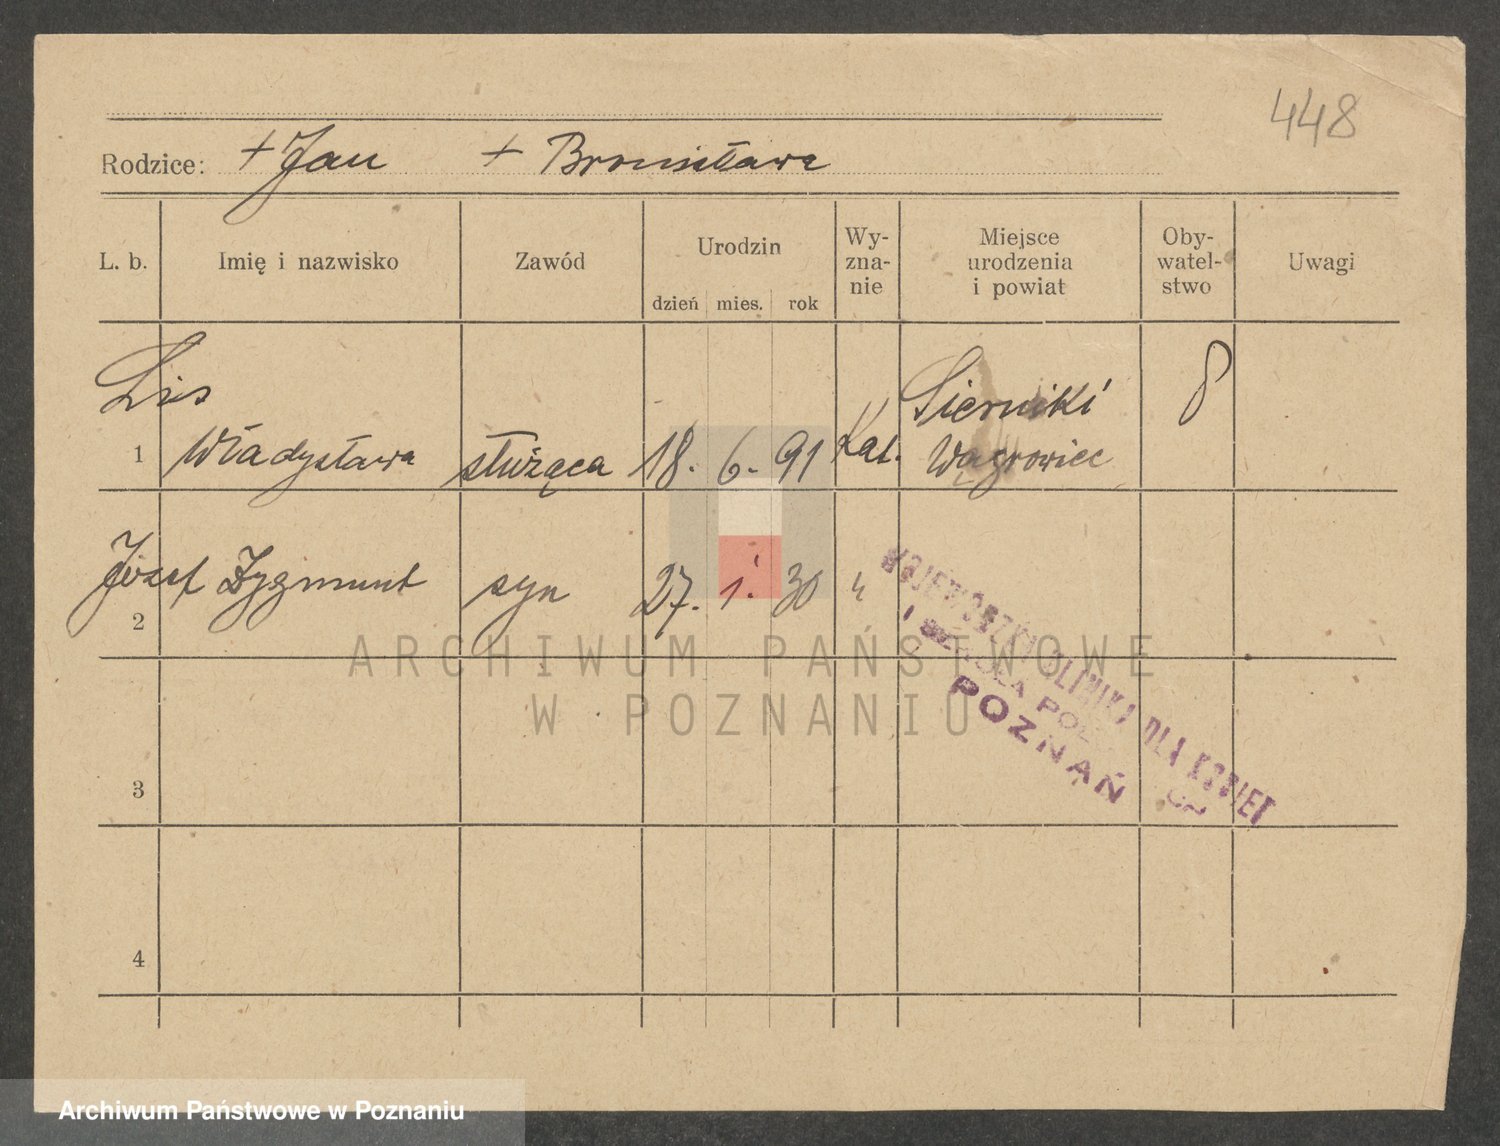 448
Rodzice: + Jan + Bronisława
L. b. Imię i nazwisko Zawód Urodzin dzień mies. rok Wy-zna-nie Miejsce urodzenia i powiat Oby-watel-stwo Uwagi
Lis Sierniki
1 Władysława służąca 18. 6. 91 Kat. Wągrowiec
2 Józef Zygmunt syn 27. 1. 30 "
3
4
WOJEWÓDZKA KLINIKA DLA KOBIET
I SZKOŁA
POZNAŃ
ARCHIWUM PAŃSTWOWE
W POZNANIU
Archiwum Państwowe w Poznaniu